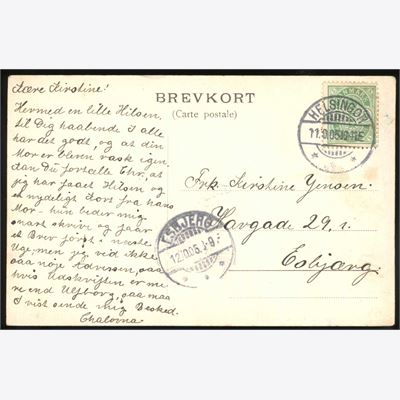 Kære Kirstine!
Hermed en lille Hilsen
til Dig haabende I alle
har det godt, og at din
Mor er bleven rask igen
kan Du fortælle Chr, at
jeg har faaet Hilsen og
en nydeligt Kort fra hans
Mor - hun beder mig
snart skrive og faar
et Brev först i næste
Uge, men jeg ved ikke
saa nöje Adressen, saa
hvis Udskriften er me
re end Ulfborg, saa maa
I vist sende mig Besked.
BREVKORT
(Carte postale)
HELSINGØR
11.9.05
ESBJERG
Frk. Kirstine Jensen.
Havgade 29, 1.
Esbjærg.